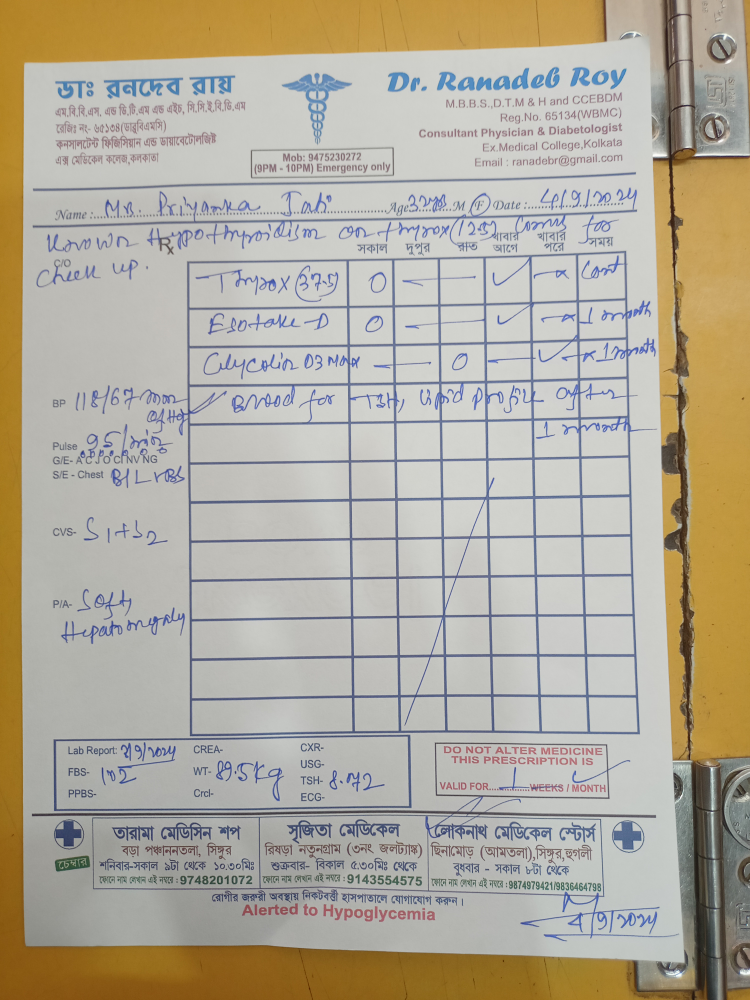 ডাঃ রনদেব রায়
এম,বি,বি,এস, এন্ড ডি,টি,এম এন্ড এইচ, সি,সি,ই,বি,ডি,এম
রেজিঃ নং- ৬৫১৩৪(ডাব্লুবিএমসি)
কনসালটেন্ট ফিজিসিয়ান এন্ড ডায়াবেটোলজিষ্ট
এক্স মেডিকেল কলেজ,কলকাতা
Mob: 9475230272
(9PM - 10PM) Emergency only
Dr. Ranadeb Roy
M.B.B.S.,D.T.M & H and CCEBDM
Reg.No. 65134(WBMC)
Consultant Physician & Diabetologist
Ex.Medical College,Kolkata
Email : ranadebr@gmail.com
Name : Priyanka Age 32 M F Date : 4/9/2024
Known Hypothyroidism on Thyrox (12.5) for
C/O check up.
Rx
সকাল দুপুর রাত খাবার আগে খাবার পরে সময়
Thyrox (37.5) O — ✓ — x Cont
Esotake-D O — ✓ — x 1 month
D3 Max — O — ✓ x 1 month
Blood for TSH, lipid profile after
1 month
BP 118/67 mm of Hg
Pulse 95/min
G/E- A C J O Cl NV NG
S/E - Chest B/L VBS
CVS- S1+S2
P/A- Soft,
Hepatomegaly
Lab Report: 2/9/2024 CREA- CXR-
FBS- 102 WT- 89.5kg USG-
PPBS- Crcl- TSH- 8.72
ECG-
DO NOT ALTER MEDICINE
THIS PRESCRIPTION IS
VALID FOR 1 WEEKS / MONTH
চেম্বার
তারামা মেডিসিন শপ
বড়া পঞ্চাননতলা, সিঙ্গুর
শনিবার-সকাল ৯টা থেকে ১০.৩০মিঃ
ফোনে নাম লেখান এই নম্বরে : 9748201072
সৃজিতা মেডিকেল
রিষড়া নতুনগ্রাম (৩নং জলট্যাঙ্ক)
শুক্রবার- বিকাল ৫.৩০মিঃ থেকে
ফোনে নাম লেখান এই নম্বরে : 9143554575
লোকনাথ মেডিকেল স্টোর্স
ছিনামোড় (আমতলা),সিঙ্গুর,হুগলী
বুধবার - সকাল ৮টা থেকে
ফোনে নাম লেখান এই নম্বরে : 9874979421/9836464798
রোগীর জরুরী অবস্থায় নিকটবর্তী হাসপাতালে যোগাযোগ করুন।
Alerted to Hypoglycemia
4/9/2024